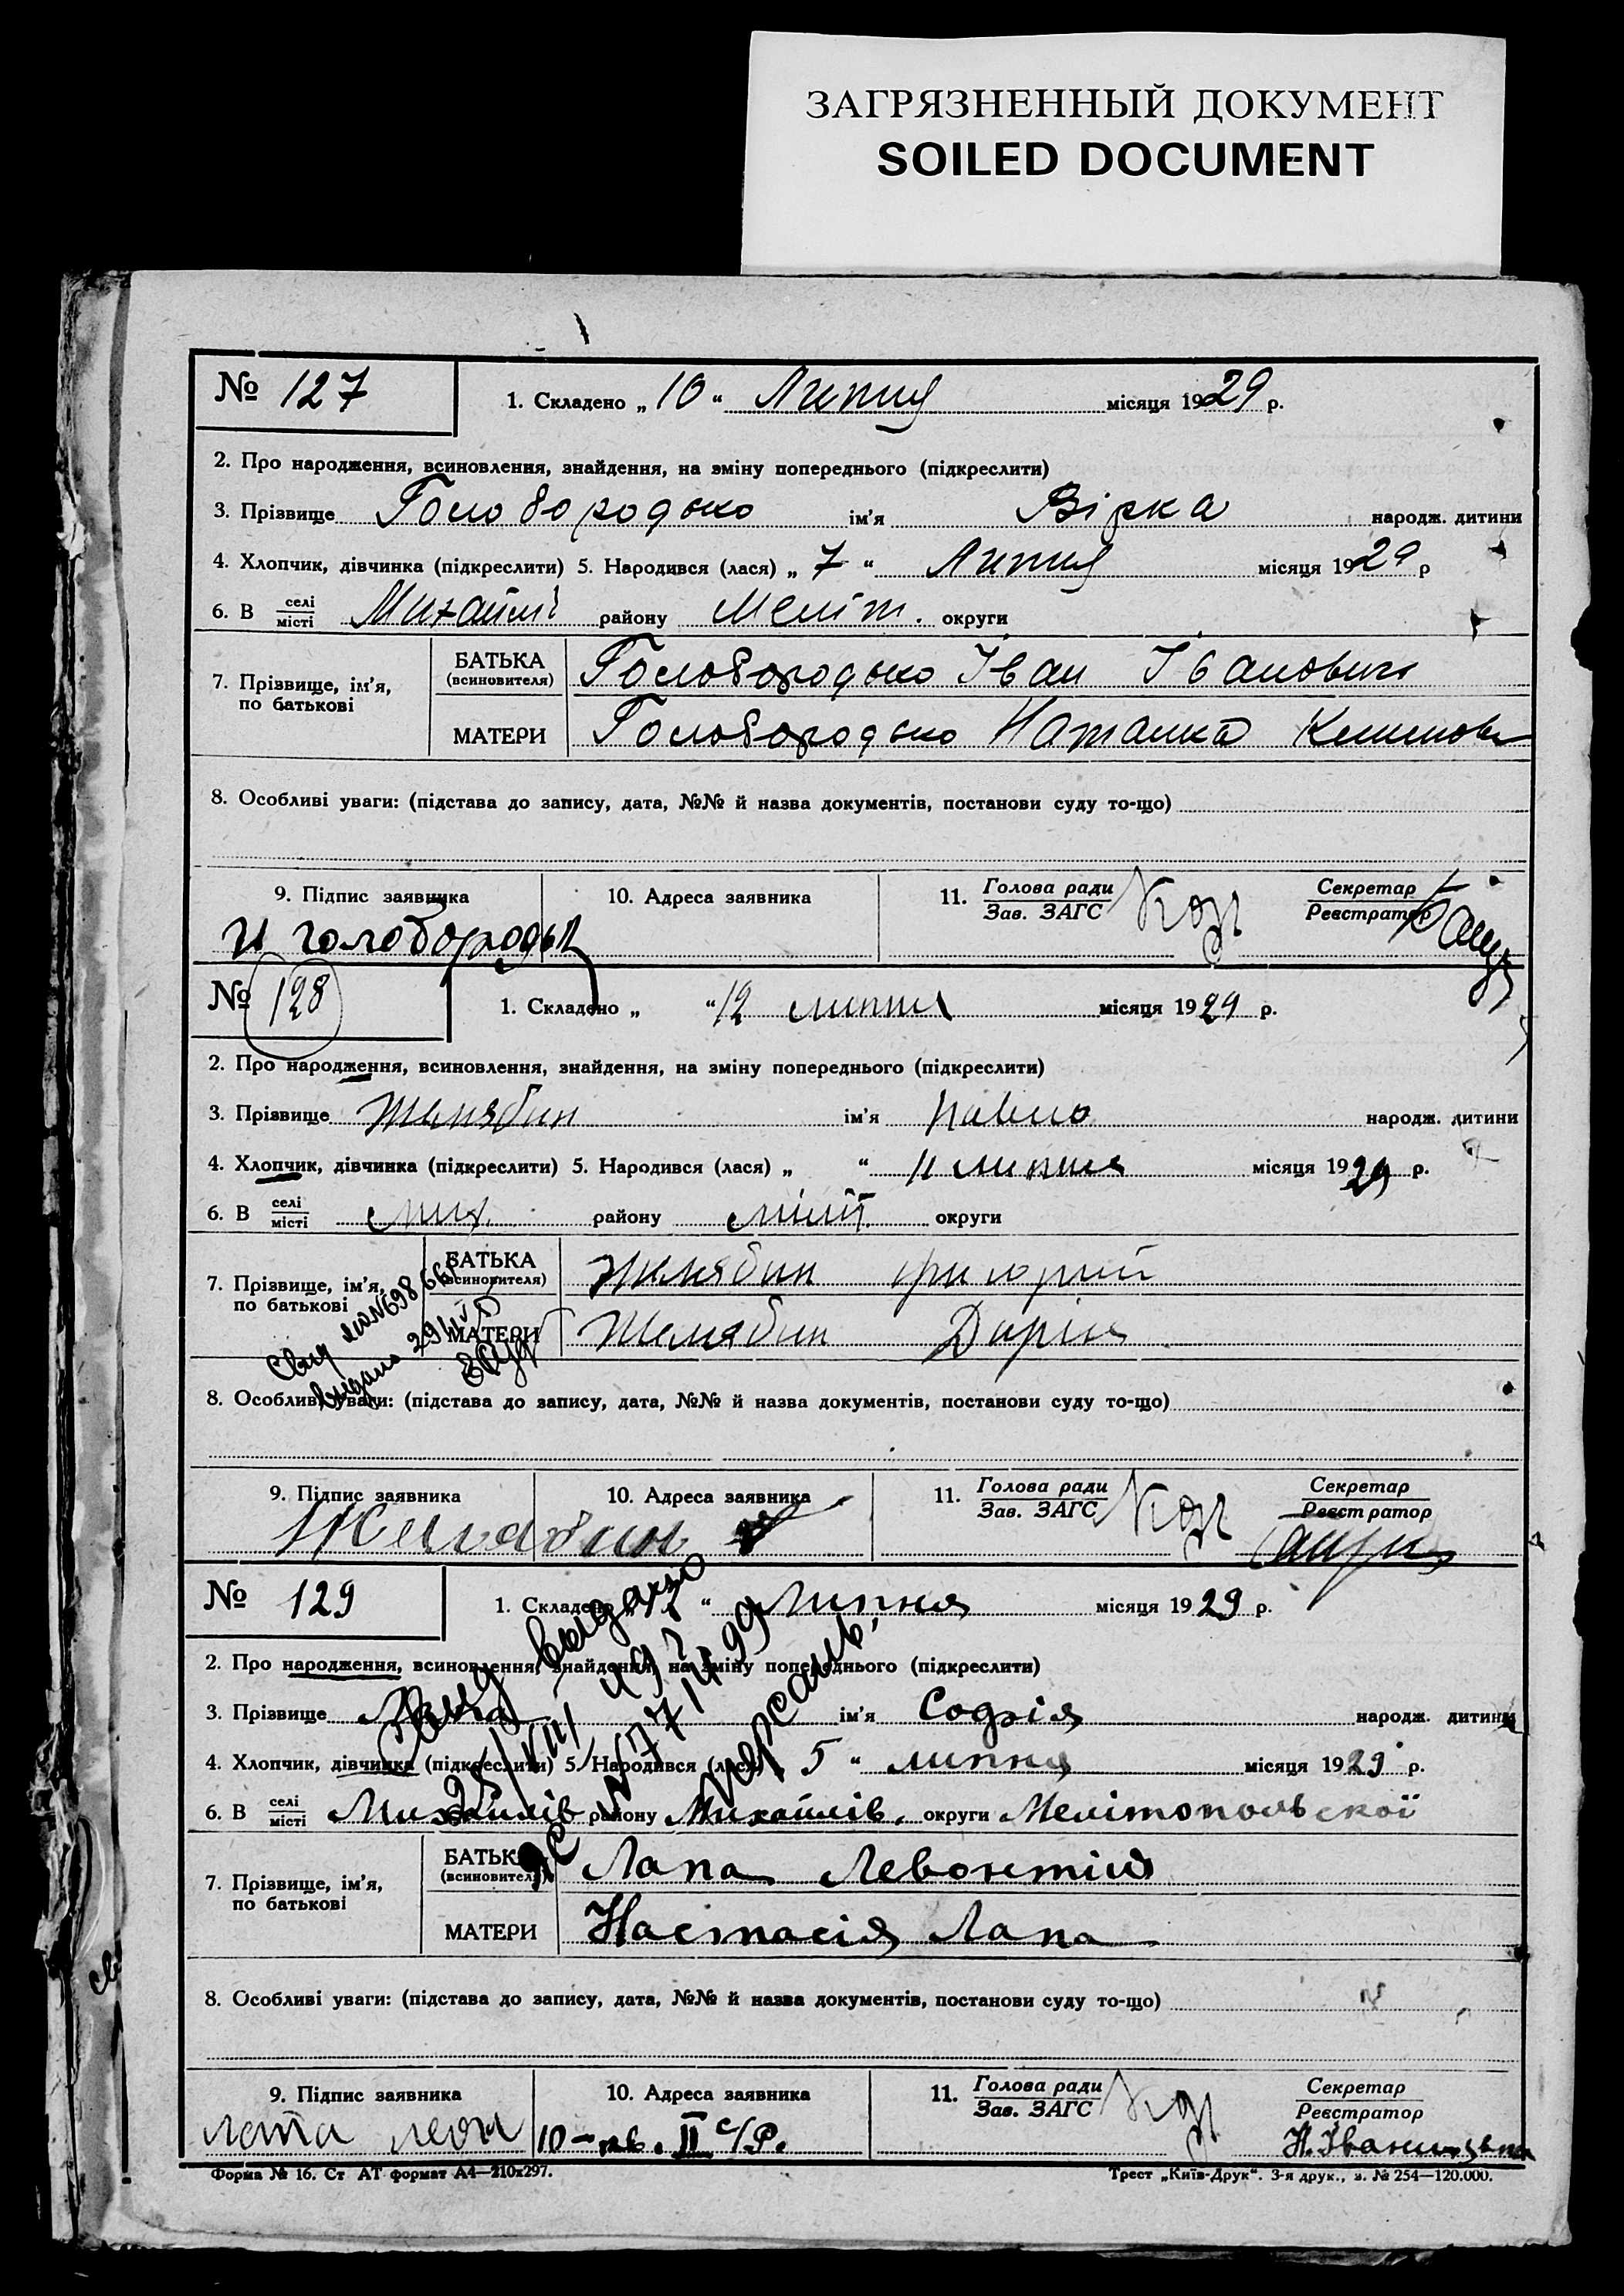 ЗАГРЯЗНЕННЫЙ ДОКУМЕНТ
SOILED DOCUMENT
№ 127 1. Складено „ 10 “ Липня місяця 1929 р.
2. Про народження, всиновлення, знайдення, на зміну попереднього (підкреслити)
3. Прізвище Голобородько ім'я Вірка народж. дитини
4. Хлопчик, дівчинка (підкреслити) 5. Народився (лася) „ 7 “ Липня місяця 1929 р
6. В селі/місті Михайлі району Меліт. округи
7. Прізвище, ім'я, по батькові
БАТЬКА (всиновителя) Голобородько Іван Іванович
МАТЕРИ Голобородько Наталка
8. Особливі уваги: (підстава до запису, дата, №№ й назва документів, постанови суду то-що)
9. Підпис заявника 10. Адреса заявника 11. Голова ради/Зав. ЗАГС Секретар/Реєстратор
И голобородь
№ 128 1. Складено „ “ 12 липня місяця 1929 р.
2. Про народження, всиновлення, знайдення, на зміну попереднього (підкреслити)
3. Прізвище Желябин ім'я Павло народж. дитини
4. Хлопчик, дівчинка (підкреслити) 5. Народився (лася) „ “ 11 липня місяця 1929 р.
6. В селі/місті Мих. району Меліт. округи
7. Прізвище, ім'я, по батькові
БАТЬКА (всиновителя) Желябин Григорий
МАТЕРИ Желябин Дарія
8. Особливі уваги: (підстава до запису, дата, №№ й назва документів, постанови суду то-що)
9. Підпис заявника 10. Адреса заявника 11. Голова ради/Зав. ЗАГС Секретар/Реєстратор
Желябин
№ 129 1. Складено „ “ Липня місяця 1929 р.
2. Про народження, всиновлення, знайдення, на зміну попереднього (підкреслити)
3. Прізвище Лапа ім'я Софія народж. дитини
4. Хлопчик, дівчинка (підкреслити) 5. Народився (лася) 5 “ липня місяця 1929 р.
6. В селі/місті Михайлів району Михайлів. округи Мелітопольскої
7. Прізвище, ім'я, по батькові
БАТЬКА (всиновителя) Лапа Левонтій
МАТЕРИ Настасія Лапа
8. Особливі уваги: (підстава до запису, дата, №№ й назва документів, постанови суду то-що)
9. Підпис заявника 10. Адреса заявника 11. Голова ради/Зав. ЗАГС Секретар/Реєстратор
10-кв. II с/Р.
Форма № 16. Ст АТ формат А4—210x297. Трест „Київ-Друк“. 3-я друк., з. № 254—120.000.